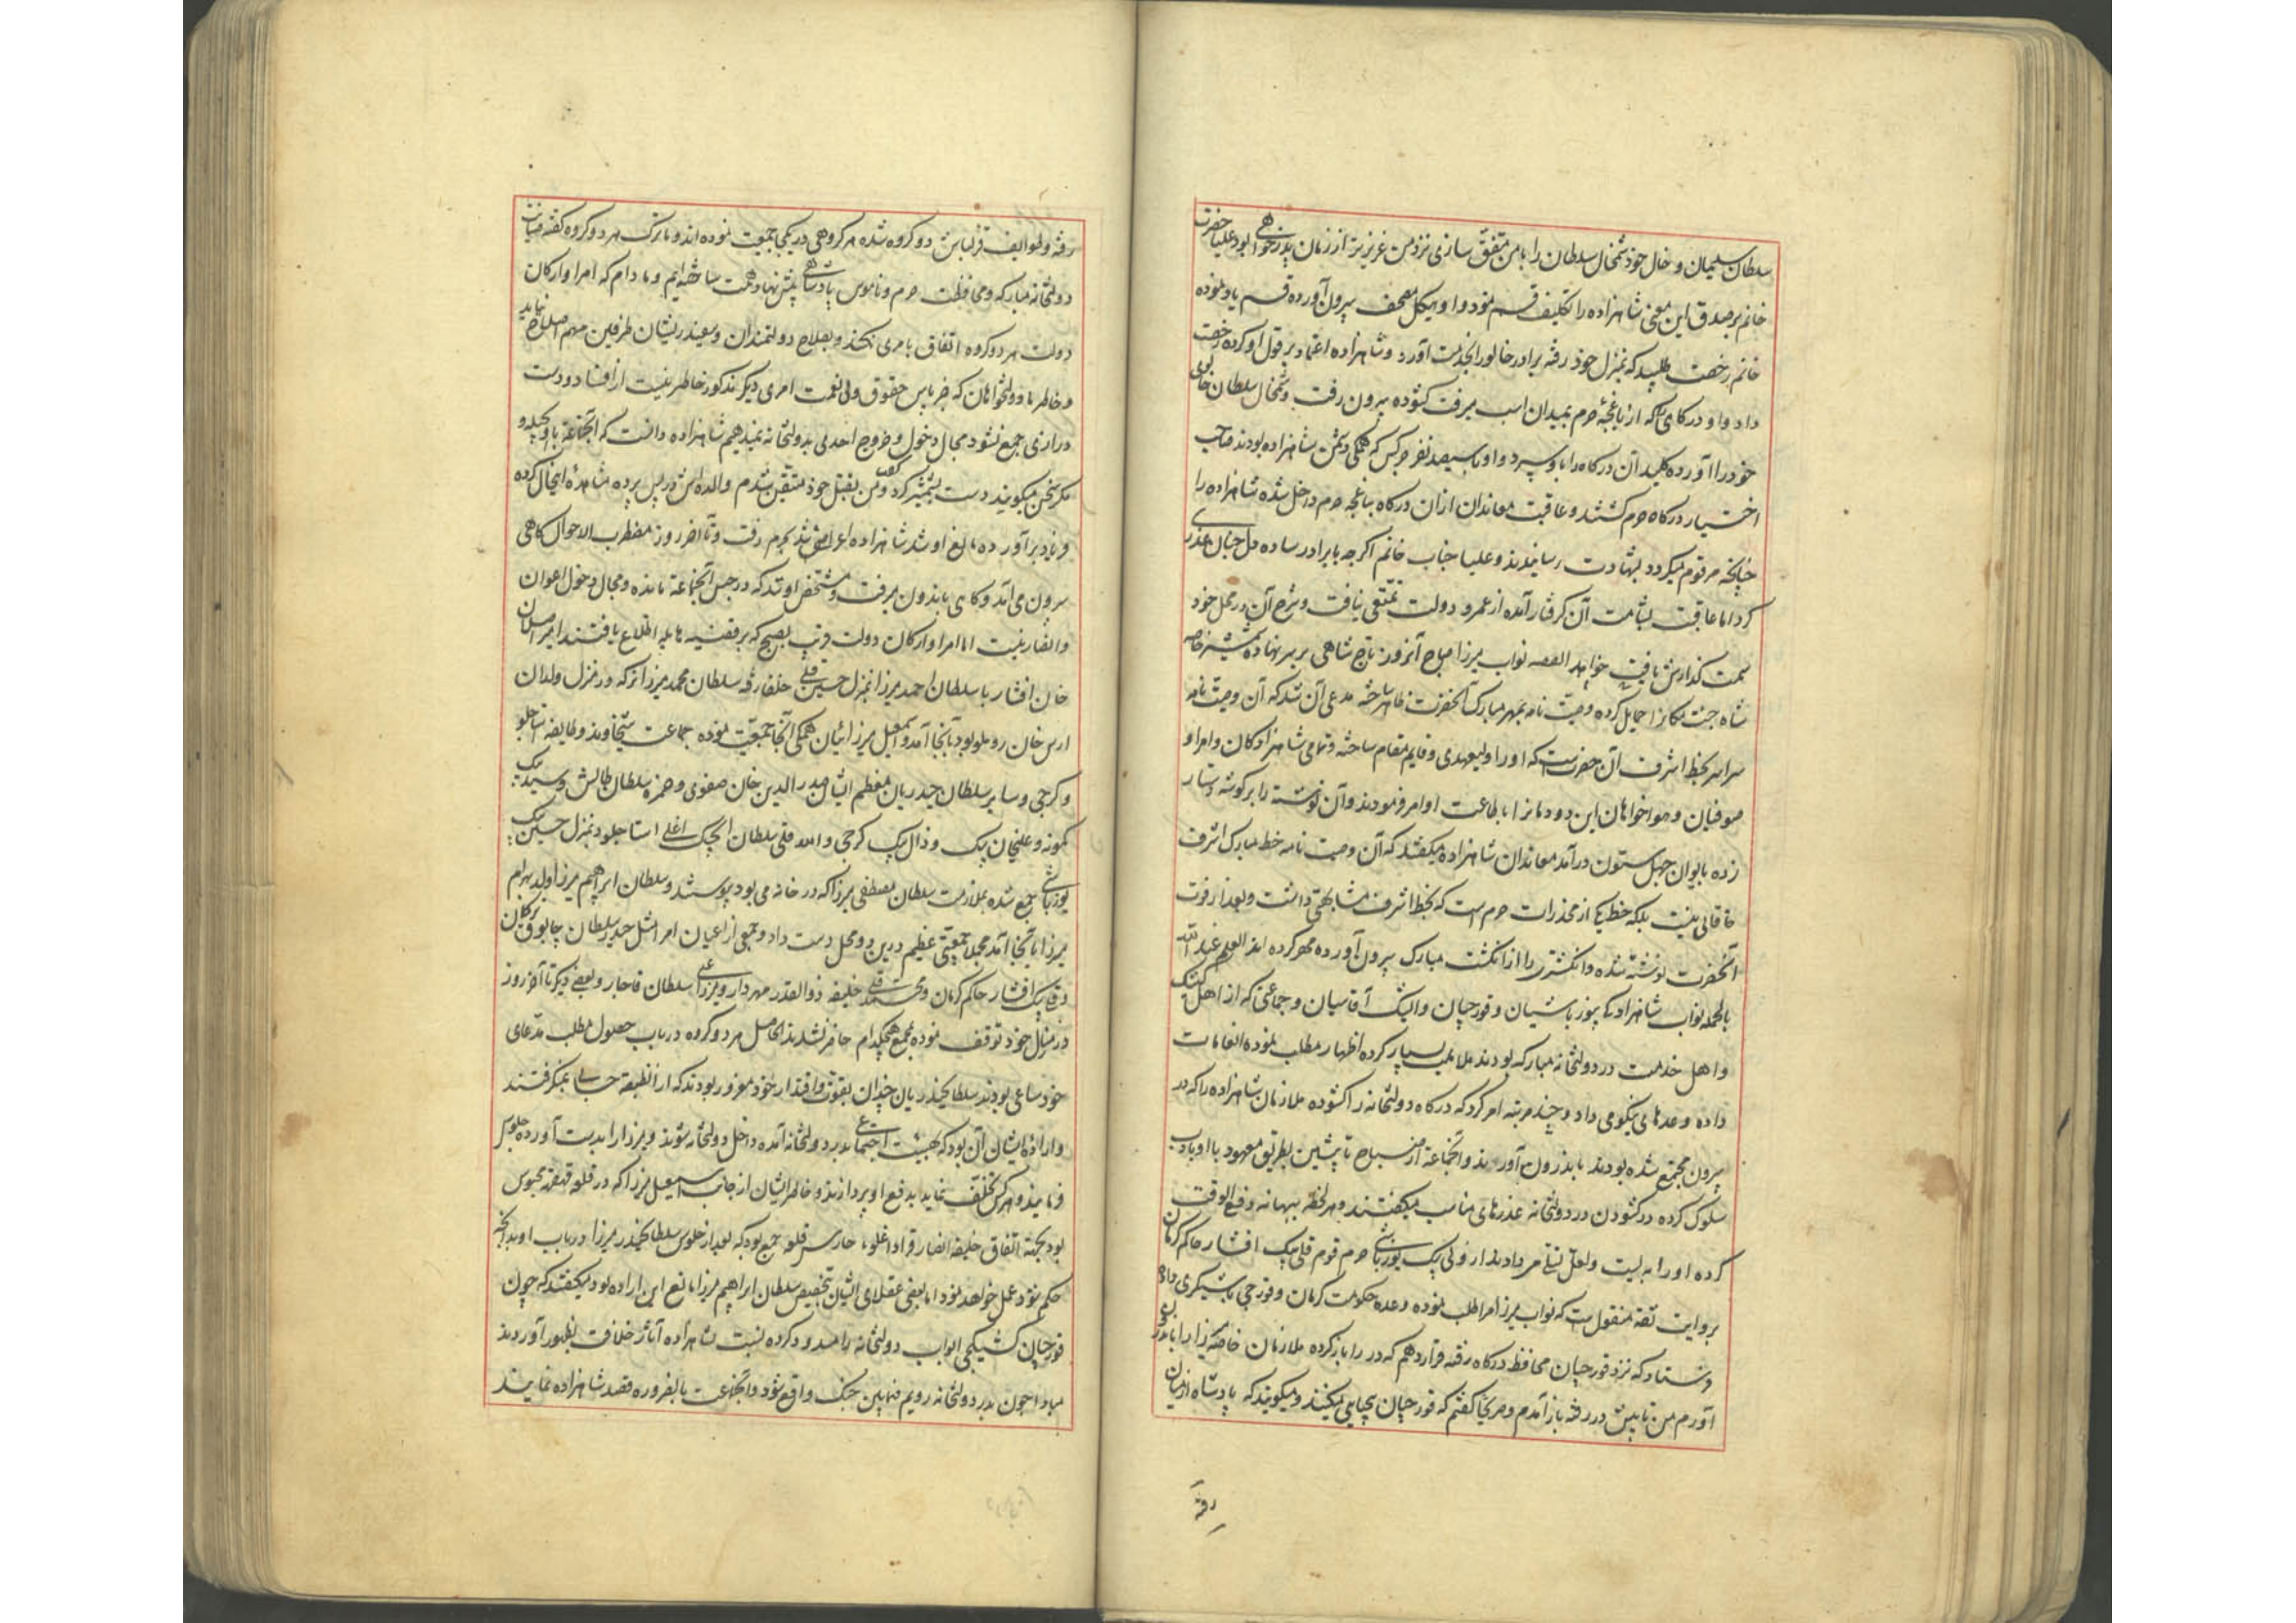 سلطان سلیمان و خال خود شمخال سلطان را با من متفق سازی نزد من عزیزتر از زمان پدر خواهی بود علیا حضرت
خانم بر صدق این معنی شاهزاده را تکلیف قسم نمود و او هیکل مصحف بیرون آورده قسم یاد نموده
خانم رخصت طلبید که بمنزل خود رفته برادر خالورا بخدمت آورد و شاهزاده اعتماد بر قول او کرده رخصت
داد و او درگاهی که از باغچهٔ حرم بمیدان اسب میرفت گشوده بیرون رفت و شمخال سلطان خالوی
خود را آورده کلید آن درگاه را باو سپرد و او با سیصد نفر چرکس که همگی دشمن شاهزاده بودند صاحب
اختیار درگاه حرم گشتند و عاقبت معاندان ازان درگاه بباغچه حرم داخل شده شاهزاده را
چنانچه مرقوم میگردد بشهادت رسانیدند و علیا جناب خانم اگرچه با برادر ساده دل چنان عذری
کرد اما عاقبت بشامت آن گرفتار آمده از عمر و دولت تمتعی نیافت و شرح آن در محل خود
سمت گذارش یافت خواهد القصه نواب میرزا صباح آنروز تاج شاهی بر سر نهاده شمشیر خاصه
شاه جنت مکانرا حمایل کرده وصیت نامه بمهر مبارک آنحضرت ظاهر ساخته مدعی آن شد که آن وصیت نامه
سراسر بخط اشرف آن حضرتست که او را ولیعهدی و قایم مقام ساخته و تمامی شاهزادگان و امرا و
صوفیان و هواخواهان این دودمانرا باطاعت او امر فرمودند و آن نوشته را بر گوشه دستار
زده بایوان چهل ستون درآمد معاندان شاهزاده میگفتند که آن وصیت نامه خط مبارک اشرف
خاقانی نیست بلکه خط یکی از مخدرات حرم است که بخط اشرف مشابهتی داشت و بعد از فوت
آنحضرت نوشته شده و انگشتری را از انگشت مبارک بیرون آورده مهر کرده اند العلم عند الله
بالجمله نواب شاهزاده بیوزباشیان و قورچیان و ایشک آقاسیان و جماعتی که از اهل کشیک
و اهل خدمت در دولتخانه مبارکه بودند ملایمت بسیار کرده اظهار مطلب نموده انعامات
داده وعدهای نیکو می داد و چند مرتبه امر کرد که درگاه دولتخانه را گشوده ملازمان شاهزاده را که در
بیرون مجتمع شده بودند باندرون آورند و آنجماعة از صباح تا پیشین بطریق معهود با او باادب
سلوک کرده در گشودن در دولتخانه عذرهای مناسب میگفتند و هر لحظه ببهانه دفع الوقت
کرده او را به لیت و لعل تسلی میدادند از ولی بیک یوزباشی حرم قوم قلی بیک افشار حاکم کرمان
بروایت ثقه منقول است که نواب میرزا مرا طلب نموده وعده حکومت کرمان و قورچی باشیگری داده
فرستاد که نزد قورچیان محافظ درگاه رفته قرار دهم که در را باز کرده ملازمان خاصه میرزا را باندرون
آورم من تا پیش در رفته باز آمدم و میرزا گفتم که قورچیان میکنند و میگویند که پادشاه از میان
رفته
رفته و طوایف قزلباش دو گروه شده هر گروهی در یکجا جمعیت نموده اند و ما ترک هر دو گروه گفته صیانت
دولتخانه مبارکه و محافظت حرم و ناموس پادشاهی پیش نهاد همت ساخته ایم و مادام که امرا و ارکان
دولت هر دو گروه اتفاق بامری نکنند و بصلاح دولتمندان و سفیدریشان طرفین مهم اصلاح نیابد
و خاطر ما دولتخواهان که جز پاس حقوق ولی نعمت امری دیگر مذکور خاطر نیست از افساد و دست
درازی جمع نشود مجال دخول و خروج احدی بدولتخانه نمیدهیم شاهزاده دانست که آنجماعة با او بحیله و
مکر سخن میگویند دست بشمشیر کرد و من بقتل خود متیقن شدم والده اش در پس پرده مشاهده اینحال کرده
فریاد برآورده مانع او شد شاهزاده اعراض نموده بحرم رفت و تا آخر روز مضطرب الاحوال گاهی
بیرون می آمد و گاهی باندرون میرفت و مشخص او شد که در حبس آنجماعة مانده و مجال دخول اعوان
و انصار نیست اما امرا و ارکان دولت قریب بصبح که بر قضیه هایله اطلاع یافتند امیر اصلان
خان افشار با سلطان احمد میرزا بمنزل حسین قلی خلفا رفته سلطان محمد میرزا نیز که در منزل ولدان
ارس خان روملو بود بآنجا آمد و اسمعیل میرزائیان همگی آنجا جمعیت نموده جماعت شیخاوند و طایفه استاجلو
و گرجی و سایر سلطان حیدریان معظم ایشان صدرالدین خان صفوی و حمزه سلطان طالش و سید بیک
کمونه و علیخان بیک و زال بیک گرجی و الله قلی سلطان ایجک اغلی استاجلو در منزل حسین بیک
یوزباشی جمع شده بملازمت سلطان مصطفی میرزا که در خانه می بود پیوستند و سلطان ابراهیم میرزا ولد بهرام
میرزا بآنجا آمد مجملا جمعیتی عظیم درین دو محل دست داد و جمعی از اعیان امرا مثل حیدر سلطان چابوق ترکمان
و قلی بیک افشار حاکم کرمان و محمد قلی خلیفه ذوالقدر مهردار و پیرزاد علی سلطان قاجار و بعضی دیگر تا آخر روز
در منازل خود توقف نموده بمجمع هیچکدام حاضر نشدند الحاصل هر دو گروه در باب حصول مطلب و مدعای
خود ساعی بودند سلطان حیدریان چندان بقوت و اقتدار خود مغرور بودند که ازانطبقه حسابی نمیگرفتند
و اراده ایشان آن بود که بهیئت اجتماعی بدر دولتخانه آمده داخل دولتخانه شوند و میرزا را بدست آورده جلوس
فرمایند و هر کس تخلف نماید بدفع او پردازند و خاطر ایشان از جانب اسمعیل میرزا که در قلعه قهقهه محبوس
بود بجهة اتفاق خلیفه انصار قراداغلو، حارس قلعه جمع بود که بعد از جلوس سلطان حیدر میرزا در باب او بدانچه
حکم شود عمل خواهد نمود اما بعضی عقلای ایشان بتخصیص سلطان ابراهیم میرزا مانع این اراده بود میگفتند که چون
قورچیان کشیکچی ابواب دولتخانه را مسدود کرده نسبت بشاهزاده آثار خلافت بظهور آوردند
مبادا چون بدر دولتخانه رویم فیمابین جنگ واقع شود و آنجماعت بالضروره قصد شاهزاده نمایند